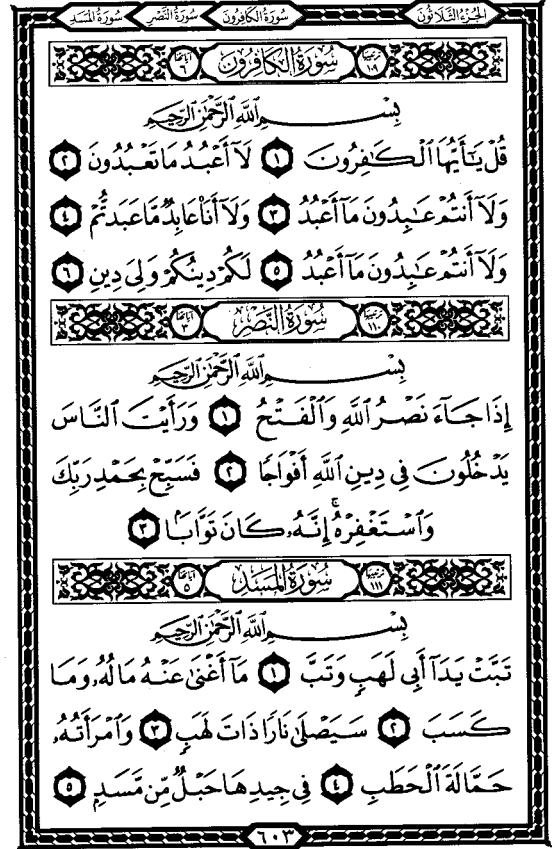 الجُزءُ الثَّلَاثُونَ سُورَةُ الكَافِرُونَ سُورَةُ النَّصْرِ سُورَةُ المَسَدِ
ترتيبها ١٠٩ سُورَةُ الكَافِرُونَ آياتها ٦
بِسْمِ ٱللَّهِ ٱلرَّحْمَٰنِ ٱلرَّحِيمِ
قُلْ يَٰٓأَيُّهَا ٱلْكَٰفِرُونَ ١ لَآ أَعْبُدُ مَا تَعْبُدُونَ ٢
وَلَآ أَنتُمْ عَٰبِدُونَ مَآ أَعْبُدُ ٣ وَلَآ أَنَا۠ عَابِدٌ مَّا عَبَدتُّمْ ٤
وَلَآ أَنتُمْ عَٰبِدُونَ مَآ أَعْبُدُ ٥ لَكُمْ دِينُكُمْ وَلِىَ دِينِ ٦
ترتيبها ١١٠ سُورَةُ النَّصْرِ آياتها ٣
بِسْمِ ٱللَّهِ ٱلرَّحْمَٰنِ ٱلرَّحِيمِ
إِذَا جَآءَ نَصْرُ ٱللَّهِ وَٱلْفَتْحُ ١ وَرَأَيْتَ ٱلنَّاسَ
يَدْخُلُونَ فِى دِينِ ٱللَّهِ أَفْوَاجًا ٢ فَسَبِّحْ بِحَمْدِ رَبِّكَ
وَٱسْتَغْفِرْهُ ۚ إِنَّهُۥ كَانَ تَوَّابًۢا ٣
ترتيبها ١١١ سُورَةُ المَسَدِ آياتها ٥
بِسْمِ ٱللَّهِ ٱلرَّحْمَٰنِ ٱلرَّحِيمِ
تَبَّتْ يَدَآ أَبِى لَهَبٍ وَتَبَّ ١ مَآ أَغْنَىٰ عَنْهُ مَالُهُۥ وَمَا
كَسَبَ ٢ سَيَصْلَىٰ نَارًا ذَاتَ لَهَبٍ ٣ وَٱمْرَأَتُهُۥ
حَمَّالَةَ ٱلْحَطَبِ ٤ فِى جِيدِهَا حَبْلٌ مِّن مَّسَدٍۭ ٥
٦٠٣